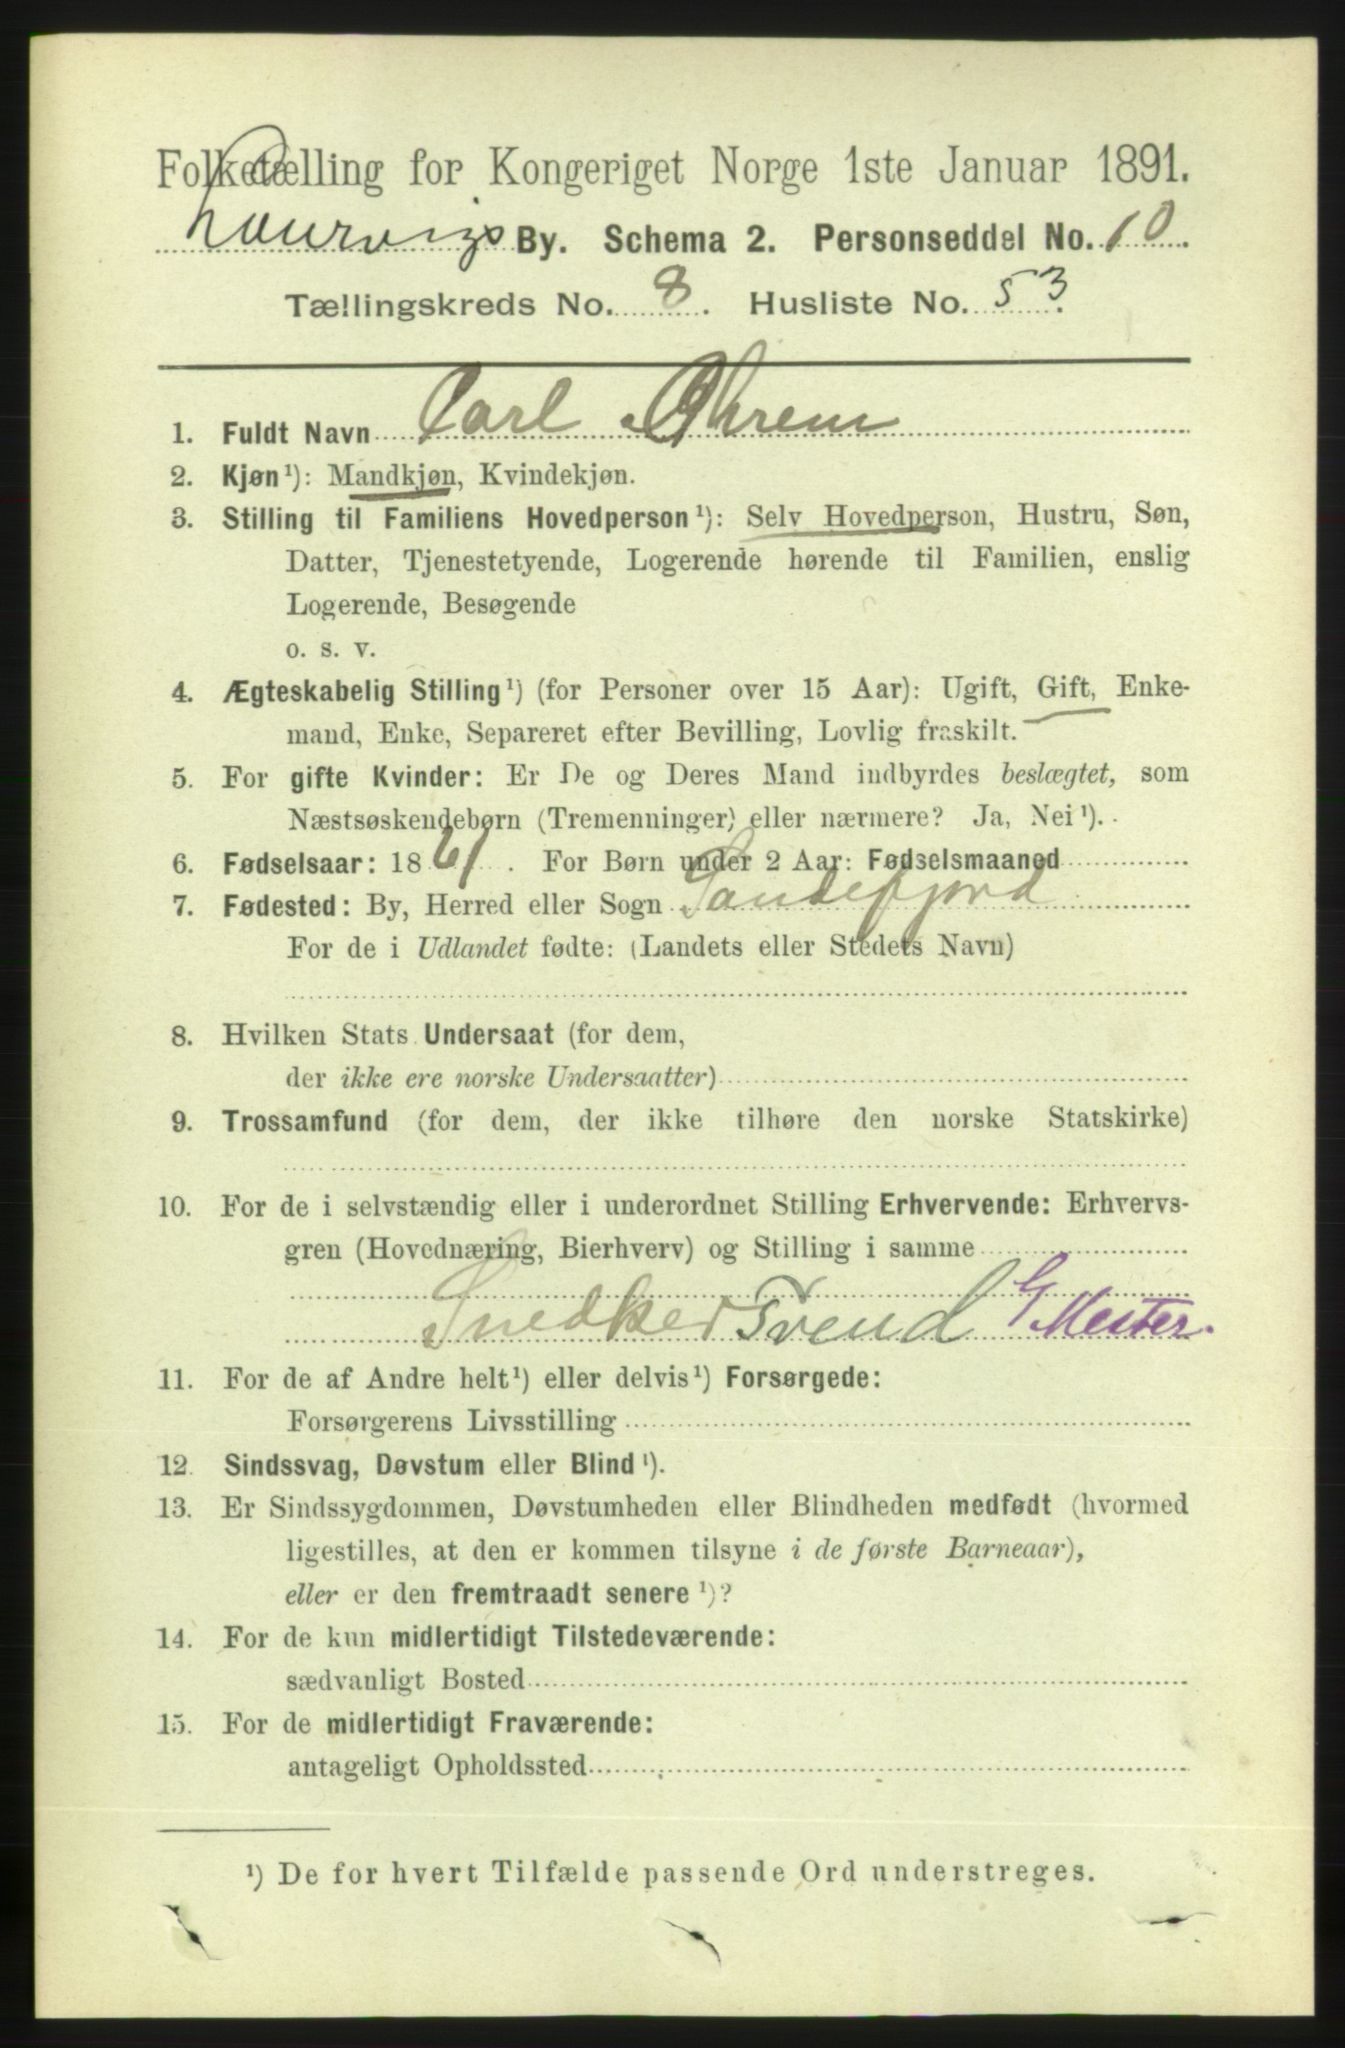 Folketælling for Kongeriget Norge 1ste Januar 1891.
Laurvigs By. Schema 2. Personseddel No. 10.
Tællingskreds No. 8. Husliste No. 53.
1. Fuldt Navn Carl Ohrem
2. Kjøn¹): Mandkjøn, Kvindekjøn.
3. Stilling til Familiens Hovedperson¹): Selv Hovedperson, Hustru, Søn,
Datter, Tjenestetyende, Logerende hørende til Familien, enslig
Logerende, Besøgende
o. s. v.
4. Ægteskabelig Stilling¹) (for Personer over 15 Aar): Ugift, Gift, Enke-
mand, Enke, Separeret efter Bevilling, Lovlig fraskilt.
5. For gifte Kvinder: Er De og Deres Mand indbyrdes beslægtet, som
Næstsøskendebørn (Tremenninger) eller nærmere? Ja, Nei¹).
6. Fødselsaar: 1861. For Børn under 2 Aar: Fødselsmaaned
7. Fødested: By, Herred eller Sogn Sandefjord
For de i Udlandet fødte: (Landets eller Stedets Navn)
8. Hvilken Stats Undersaat (for dem,
der ikke ere norske Undersaatter)
9. Trossamfund (for dem, der ikke tilhøre den norske Statskirke)
10. For de i selvstændig eller i underordnet Stilling Erhvervende: Erhvervs-
gren (Hovednæring, Bierhverv) og Stilling i samme
Snedker Svend Mester.
11. For de af Andre helt¹) eller delvis¹) Forsørgede:
Forsørgerens Livsstilling
12. Sindssvag, Døvstum eller Blind¹).
13. Er Sindssygdommen, Døvstumheden eller Blindheden medfødt (hvormed
ligestilles, at den er kommen tilsyne i de første Barneaar),
eller er den fremtraadt senere¹)?
14. For de kun midlertidigt Tilstedeværende:
sædvanligt Bosted
15. For de midlertidigt Fraværende:
antageligt Opholdssted
¹) De for hvert Tilfælde passende Ord understreges.